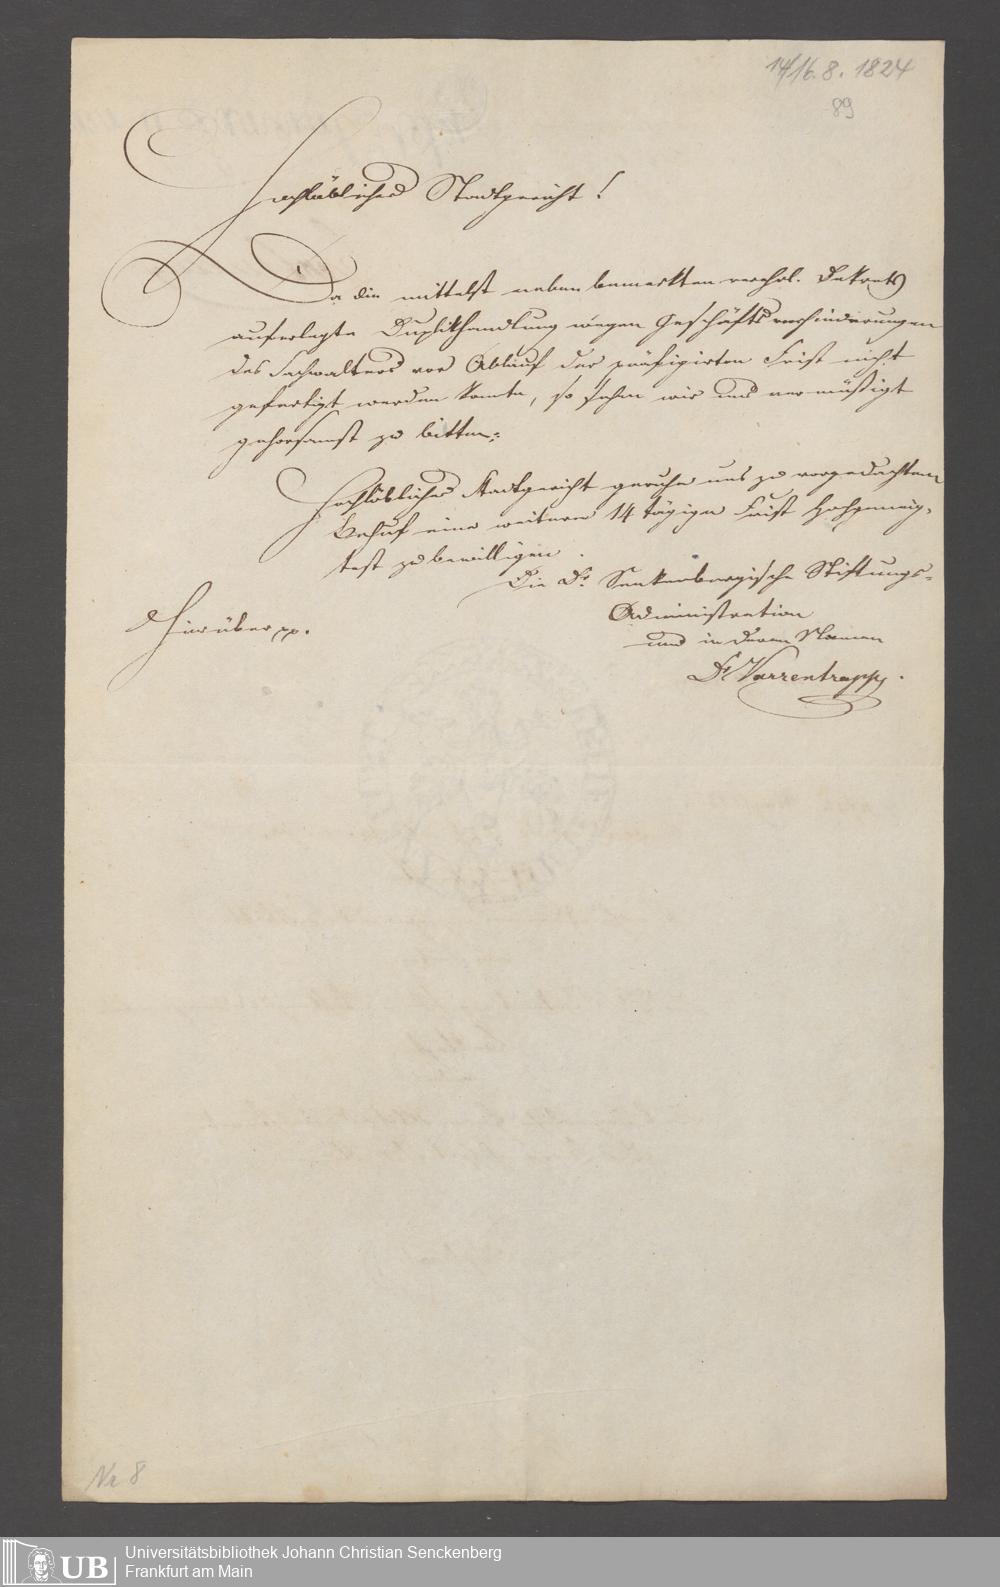 14/16. 8. 1824
89
Hochlöbliches Stadtgericht!
Da die mittelst neben bemerkten verehrl. Dekrets
auferlegte Duplikhandlung wegen Geschäftsverhinderungen
des Sachwalters vor Ablauf der präfigirten Frist nicht
gefertigt werden konnte, so sehen wir uns vermüßigt
gehorsamst zu bitten:
Hochlöbliches Stadtgericht geruhe uns zu vorgedachtem
Behuf eine weitere 14 tägige Frist hochgeneig-
test zu bewilligen.
Die Dr. Senkenbergische Stiftungs-
Administration
und in deren Namen
Dr. Varrentrapp.
Hierüber pp.
Nr 8
UB
Universitätsbibliothek Johann Christian Senckenberg
Frankfurt am Main